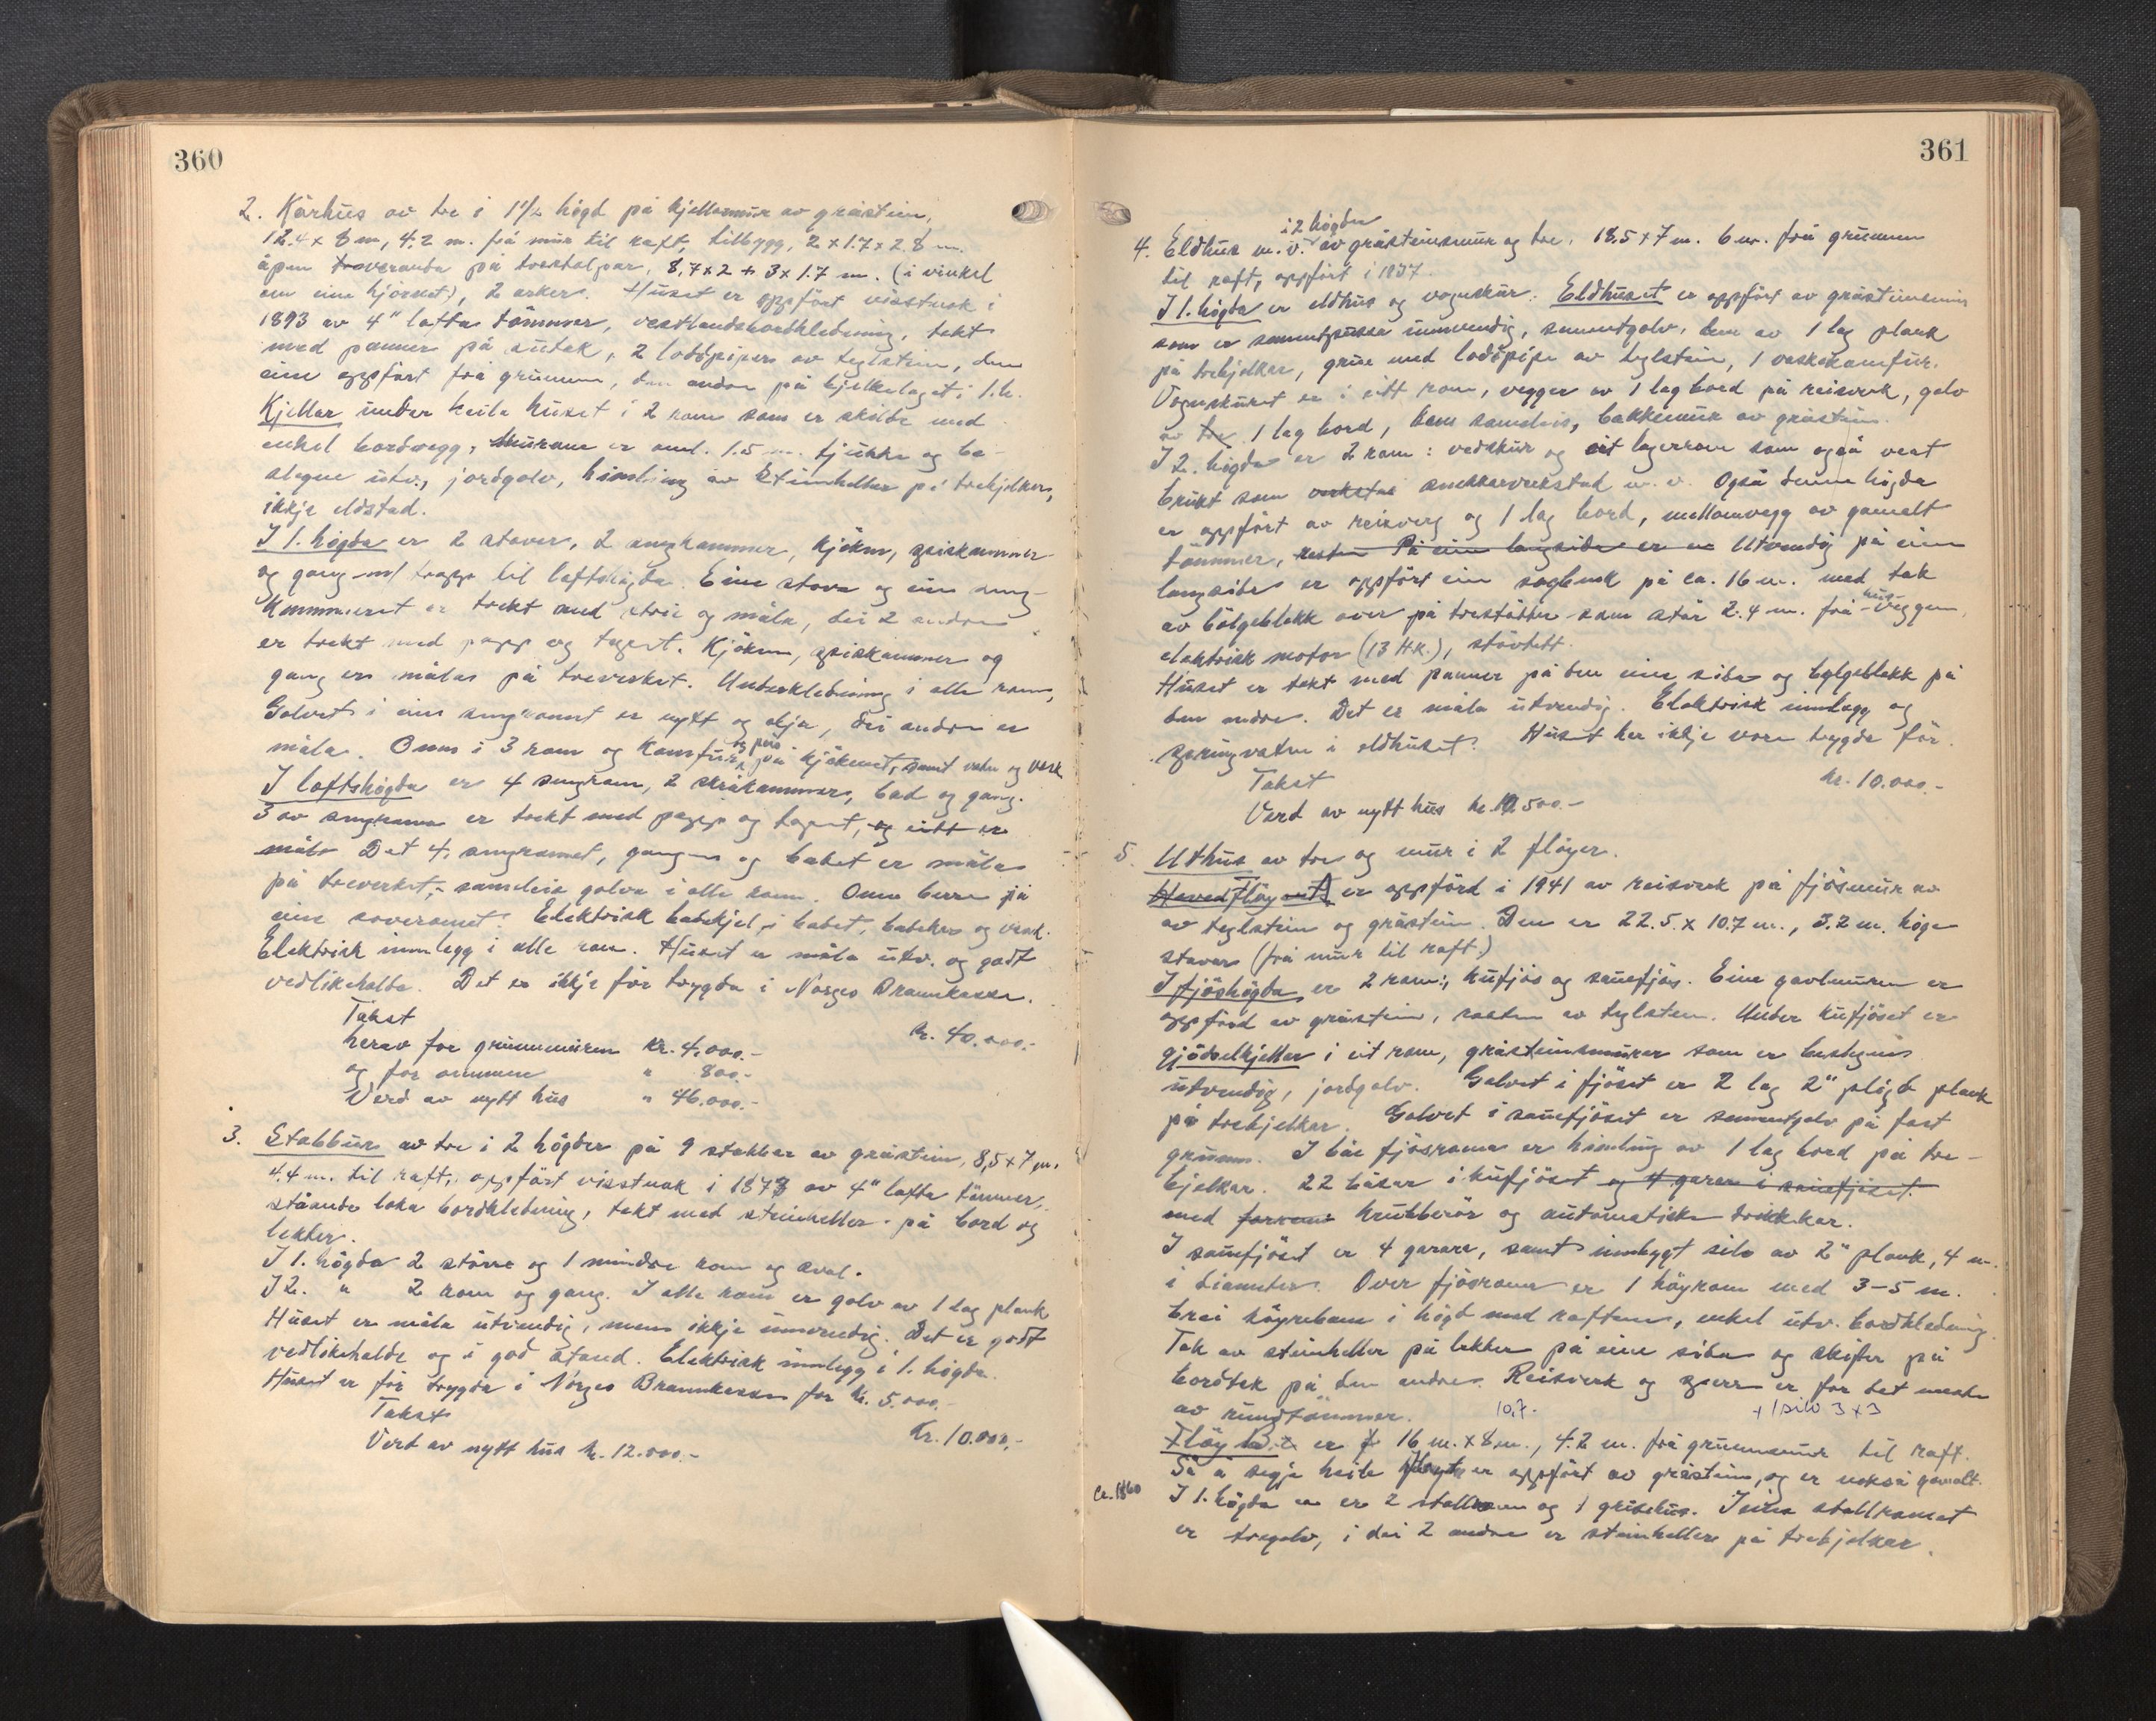 360
2. Kårhus av tre i 1½ högd på kjellarmur av gråstein,
12.4 x 8 m, 4.2 m. frå mur til raft, tilbygg, 2 x 1.7 x 2.8 m.
åpen treveranda på trestolpar, 8,7 x 2 + 3 x 1.7 m. (i vinkel
om eine hjörnet), 2 arker. Huset er oppfört visstnok i
1893 av 4" lafta tömmer, vestlandsbordkledning, tekt
med panner på sutak, 2 loddpiper av teglstein, den
eine oppfört frå grunnen, den andre på bjelkelaget i 1. h.
Kjellar under heile huset i 2 rom som er skilde med
enkel bordvegg, murane er oml. 1.5 m. tjukke og be-
slegne utv., jordgolv, himling av steinheller på trebjelker,
ikkje eldstad.
I 1. högda er 2 stover, 2 sengkammer, kjöken, spiskammer
og gang m/ trapp til loftshögda. Eine stova og ein seng-
kammeret er trekt med strie og måla, dei 2 andre
er trekt med papp og tapet. Kjöken, spiskammer og
gang er måla på treverket. Underkledning i alle rom,
Golvet i ein sengromet er nytt og olja, dei andre er
måla. Omn i 3 rom og komfur på kjökenet, samt vatn og vask
I loftshögda er 4 sengrom, 2 skråkammer, bad og gang.
3 av sengroma er trekt med papp og tapet, og eitt er
måla Det 4. sengromet, gangen og badet er måla
på treverket, sameleis golva i alle rom. Omn berre på
eine soveromet. Elektrisk badekjel i badet, badekar og vask.
Elektrisk innlegg i alle rom. Huset er måla utv. og godt
vedlikehalde. Det er ikkje för trygda i Norges Brannkasse.
Takst kr. 40.000.-
herav for grunnmuren kr. 4.000.-
og for omnane " 800.-
Verd av nytt hus " 46.000.-
3. Stabbur av tre i 2 högder på 9 stabbar av gråstein, 8,5 x 7 m.
4.4 m. til raft, oppfört visstnok i 1873 av 4" lafta tömmer,
ståande loka bordkledning, tekt med steinheller på bord og
lekter.
I 1. högda 2 större og 1 mindre rom og sval.
I 2. " 2 rom og gang. I alle rom er golv av 1 lag plank
Huset er måla utvendig, men ikkje innvendig. Det er godt
vedlikehalde og i god stand. Elektrisk innlegg i 1. högda.
Huset er för trygda i Norges Brannkasse for kr. 5.000.-
Takst Kr. 10.000.-
Verd av nytt hus kr. 12.000.-
361
i 2 högder
4. Eldhus m. v. av gråsteinsmur og tre. 18.5 x 7 m. 6 m. frå grunnen
til raft, oppfört i 1937.
I 1. högda er eldhus og vognskur. Eldhuset er oppfört av gråsteinsmur
som er sementpussa innvendig, sementgolv, hem av 1 lag plank
på trebjelkar, grue med loddpipe av teglstein, 1 vaskekomfur.
Vognskuret er i eitt rom, vegger av 1 lag bord på reisverk, golv
av tre 1 lag bord, hem sameleis, bakkemur av gråstein.
I 2. högda er 2 rom: vedskur og eit lagerrom som også vert
brukt som verkstad snekkarverkstad m. v. Også denne högda
er oppfört av reisverk og 1 lag bord, mellomvegg av gamalt
tömmer, resten På ein langside er en Utvendig på ein
langside er oppfört ein sagbenk på ca. 16 m. med tak
av bölgeblekk over på trestötter som står 2.4 m. frå hus-veggen,
elektrisk motor (13 HK.), stövtett.
Huset er tekt med panner på den eine sida og bylgeblekk på
den andre. Det er måla utvendig. Elektrisk innlegg og
springvatn i eldhuset. Huset har ikkje vore trygda för.
Takst kr. 10.000.-
Verd av nytt hus kr. 10.500.-
5. Uthus av tre og mur i 2 flöyer.
Hovedflöy A er oppförd i 1941 av reisverk på fjösmur av
av teglstein og gråstein. Den er 22.5 x 10.7 m., 3.2 m. höge
staver (frå mur til raft.)
I fjöshögda er 2 rom: kufjös og sauefjös. Eine gavlmuren er
oppförd av gråstein, resten av teglstein. Under kufjöset er
gjödselkjeller i eit rom, gråsteinsmurer som er beslegne
utvendig, jordgolv. Golvet i fjöset er 2 lag 2" plögd plank
på trebjelkar. Golvet i sauefjöset er sementgolv på fast
grunn. I båe fjösroma er himling av 1 lag bord på tre-
bjelkar. 22 båsar i kufjöset og 4 garar i sauefjöset.
med krubberör og automatiske drikkekar.
I sauefjöset er 4 garara, samt innbygt silo av 2" plank, 4 m.
i diameter. Over fjösroma er 1 höyrom med 3-5 m.
brei köyrebane i högd med raftene, enkel utv. bordkledning.
Tak av steinheller på lekter på eine sida og skifer på
bordtak på den andre. Reisverk og sperr er for det meste
av rundtömmer. 10,7. + 1 silo 3 x 3
Flöy B. er 16 m. x 8 m., 4.2 m. frå grunnmur til raft.
Så å segja heile flöyta er oppfört av gråstein, og er nokså gamalt.
Ca. 1860 I 1. högda er 2 stallrom og 1 grisehus. I eine stallromet
er tregolv, i dei 2 andre er steinheller på trebjelkar.